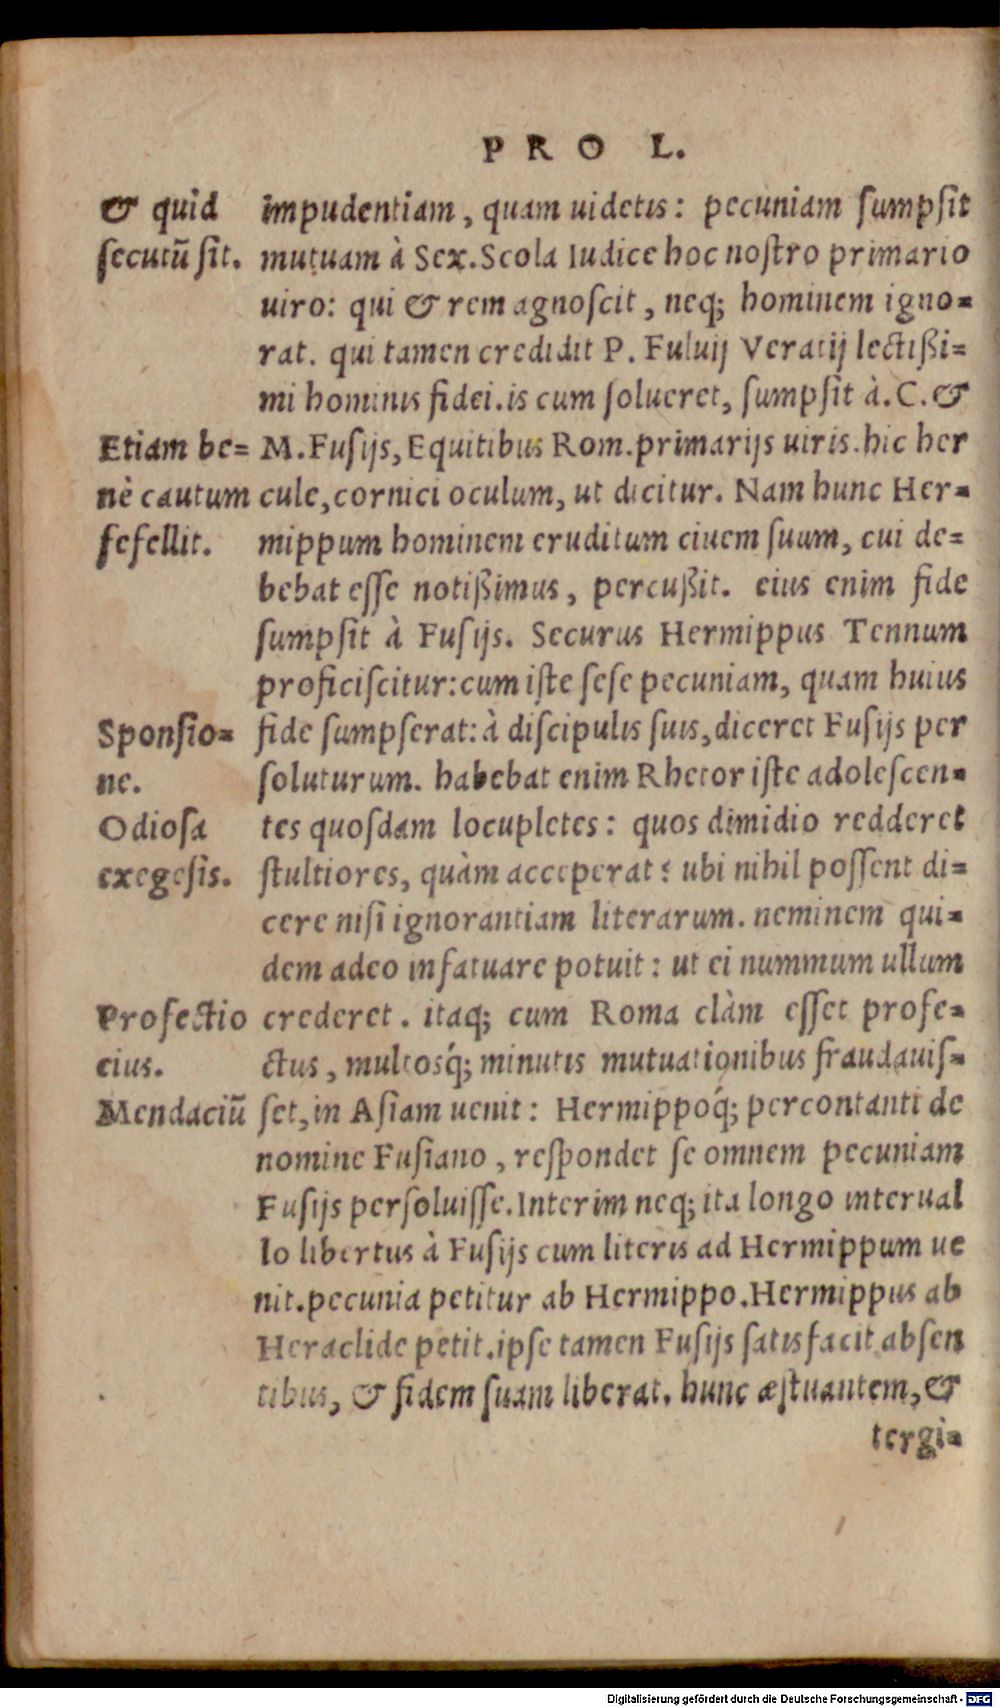 PRO L.
& quid
secutū sit.
Etiam be=
nè cautum
fefellit.
Sponsio=
ne.
Odiosa
exegesis.
Profectio
eius.
Mendaciū
impudentiam, quam uidetis: pecuniam sumpsit
mutuam à Sex. Scola Iudice hoc nostro primario
uiro: qui & rem agnoscit, neq; hominem igno=
rat. qui tamen credidit P. Fuluij Veratij lectißi=
mi hominis fidei. is cum solueret, sumpsit à. C. &
M. Fusijs, Equitibus Rom. primarijs uiris. hic her
cule, cornici oculum, ut dicitur. Nam hunc Her=
mippum hominem eruditum ciuem suum, cui de=
bebat esse notißimus, percußit. eius enim fide
sumpsit à Fusijs. Securus Hermippus Tennum
proficiscitur: cum iste sese pecuniam, quam huius
fide sumpserat: à discipulis suis, diceret Fusijs per
soluturum. habebat enim Rhetor iste adolescen=
tes quosdam locupletes: quos dimidio redderet
stultiores, quàm acceperat: ubi nihil possent di=
cere nisi ignorantiam literarum. neminem qui=
dem adeo infatuare potuit: ut ei nummum ullum
crederet. itaq; cum Roma clàm esset profe=
ctus, multosq́; minutis mutuationibus fraudauis=
set, in Asiam uenit: Hermippoq́; percontanti de
nomine Fusiano, respondet se omnem pecuniam
Fusijs persoluisse. Interim neq; ita longo interual
lo libertus à Fusijs cum literis ad Hermippum ue
nit. pecunia petitur ab Hermippo. Hermippus ab
Heraclide petit. ipse tamen Fusijs satisfacit absen
tibus, & fidem suam liberat. hunc æstuantem, &
tergi=
Digitalisierung gefördert durch die Deutsche Forschungsgemeinschaft - DFG